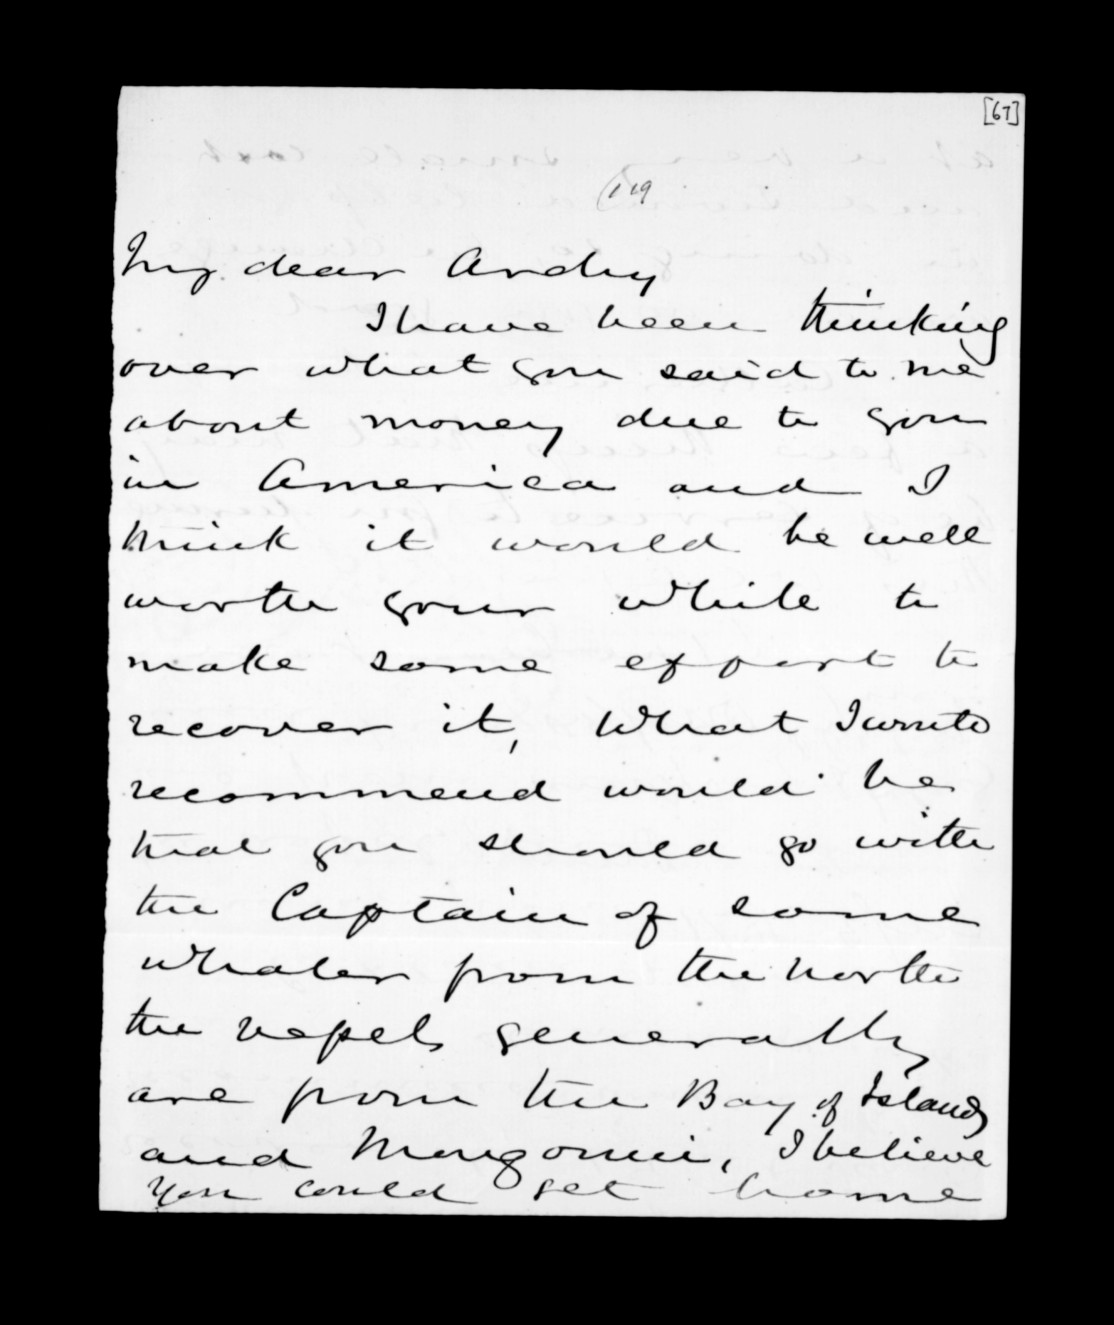 [67]
119
My dear Andy
I have been thinking
over what you said to me
about money due to you
in America and I
think it would be well
worth your while to
make some effort to
recover it, What I would
recommend would be
that you should go with
the Captain of some
whaler from the North
the vessels generally
are from the Bay of Islands
and Mongonui, I believe
you could get home